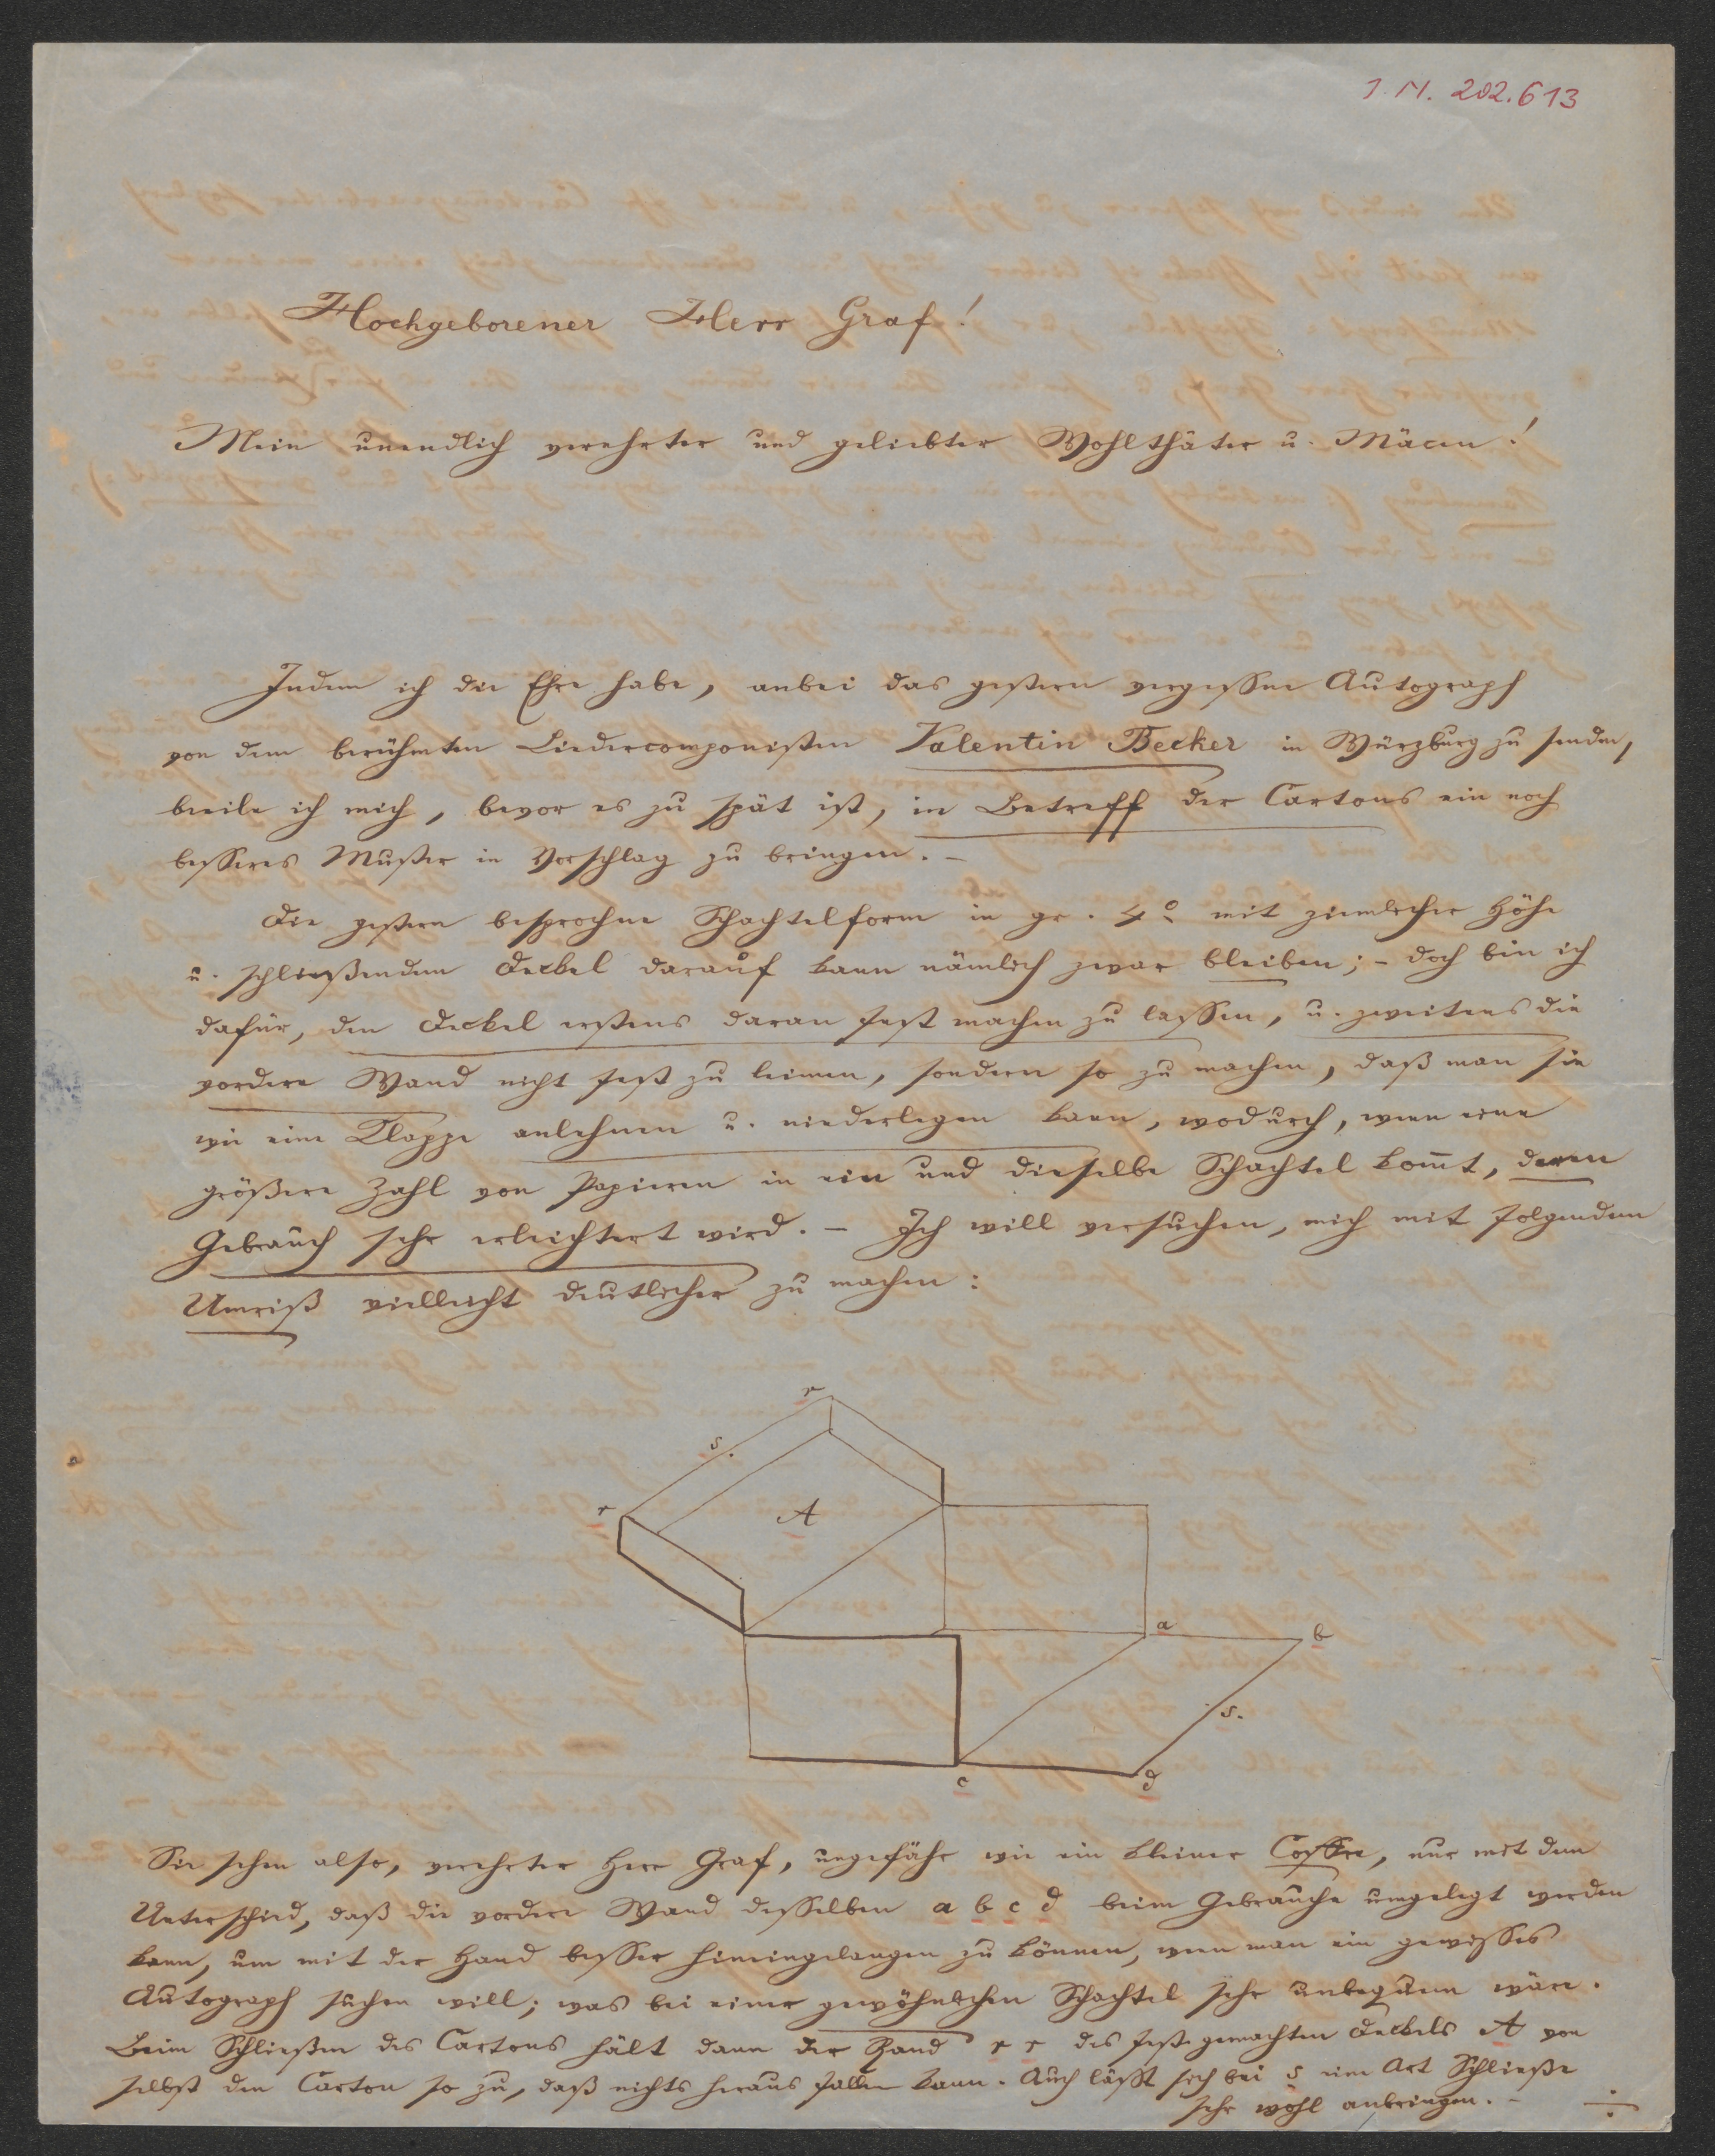 I. N. 202.613
Hochgeborener Herr Graf!
Mein unendlich verehrter und geliebter Wohlthäter u. Mäcen!
Indem ich die Ehre habe, anbei das gestern vergessne Autograph
von dem berühmten Liedercomponisten Valentin Becker in Würzburg zu senden,
beeile ich mich, bevor es zu spät ist, in Betreff der Cartons ein noch
besseres Muster in Vorschlag zu bringen. –
Die gestern besprochne Schachtelform in gr. 4º mit ziemlicher Höhe
u. schließendem Deckel darauf kann nämlich zwar bleiben; – doch bin ich
dafür, den Deckel erstens daran fest machen zu lassen, u. zweitens die
vordere Wand nicht fest zu leimen, sondern so zu machen, daß man sie
wie eine Klappe anlehnen u. niederlegen kann, wodurch, wenn eine
größere Zahl von Papieren in ein und dieselbe Schachtel kom̄t, deren
Gebrauch sehr erleichtert wird. – Ich will versuchen, mich mit folgendem
Umriß vielleicht deutlicher zu machen:
r
s.
r
A
a
b
s.
c
d
Sie sehen also, verehrter Herr Graf, ungefähr wie ein kleiner Coffre, nur mit dem
Unterschied, daß die vordere Wand desselben a b c d beim Gebrauche umgelegt werden
kann, um mit der Hand besser hineingelangen zu können, wenn man ein gewisses
Autograph suchen will; was bei einer gewöhnlichen Schachtel sehr unbequem wäre.
Beim Schließen des Cartons hält dann der Rand r r des festgemachten Deckels A von
selbst den Carton so zu, daß nichts heraus fallen kann. Auch läßt sich bei s eine Art Schließe
sehr wohl anbringen. –